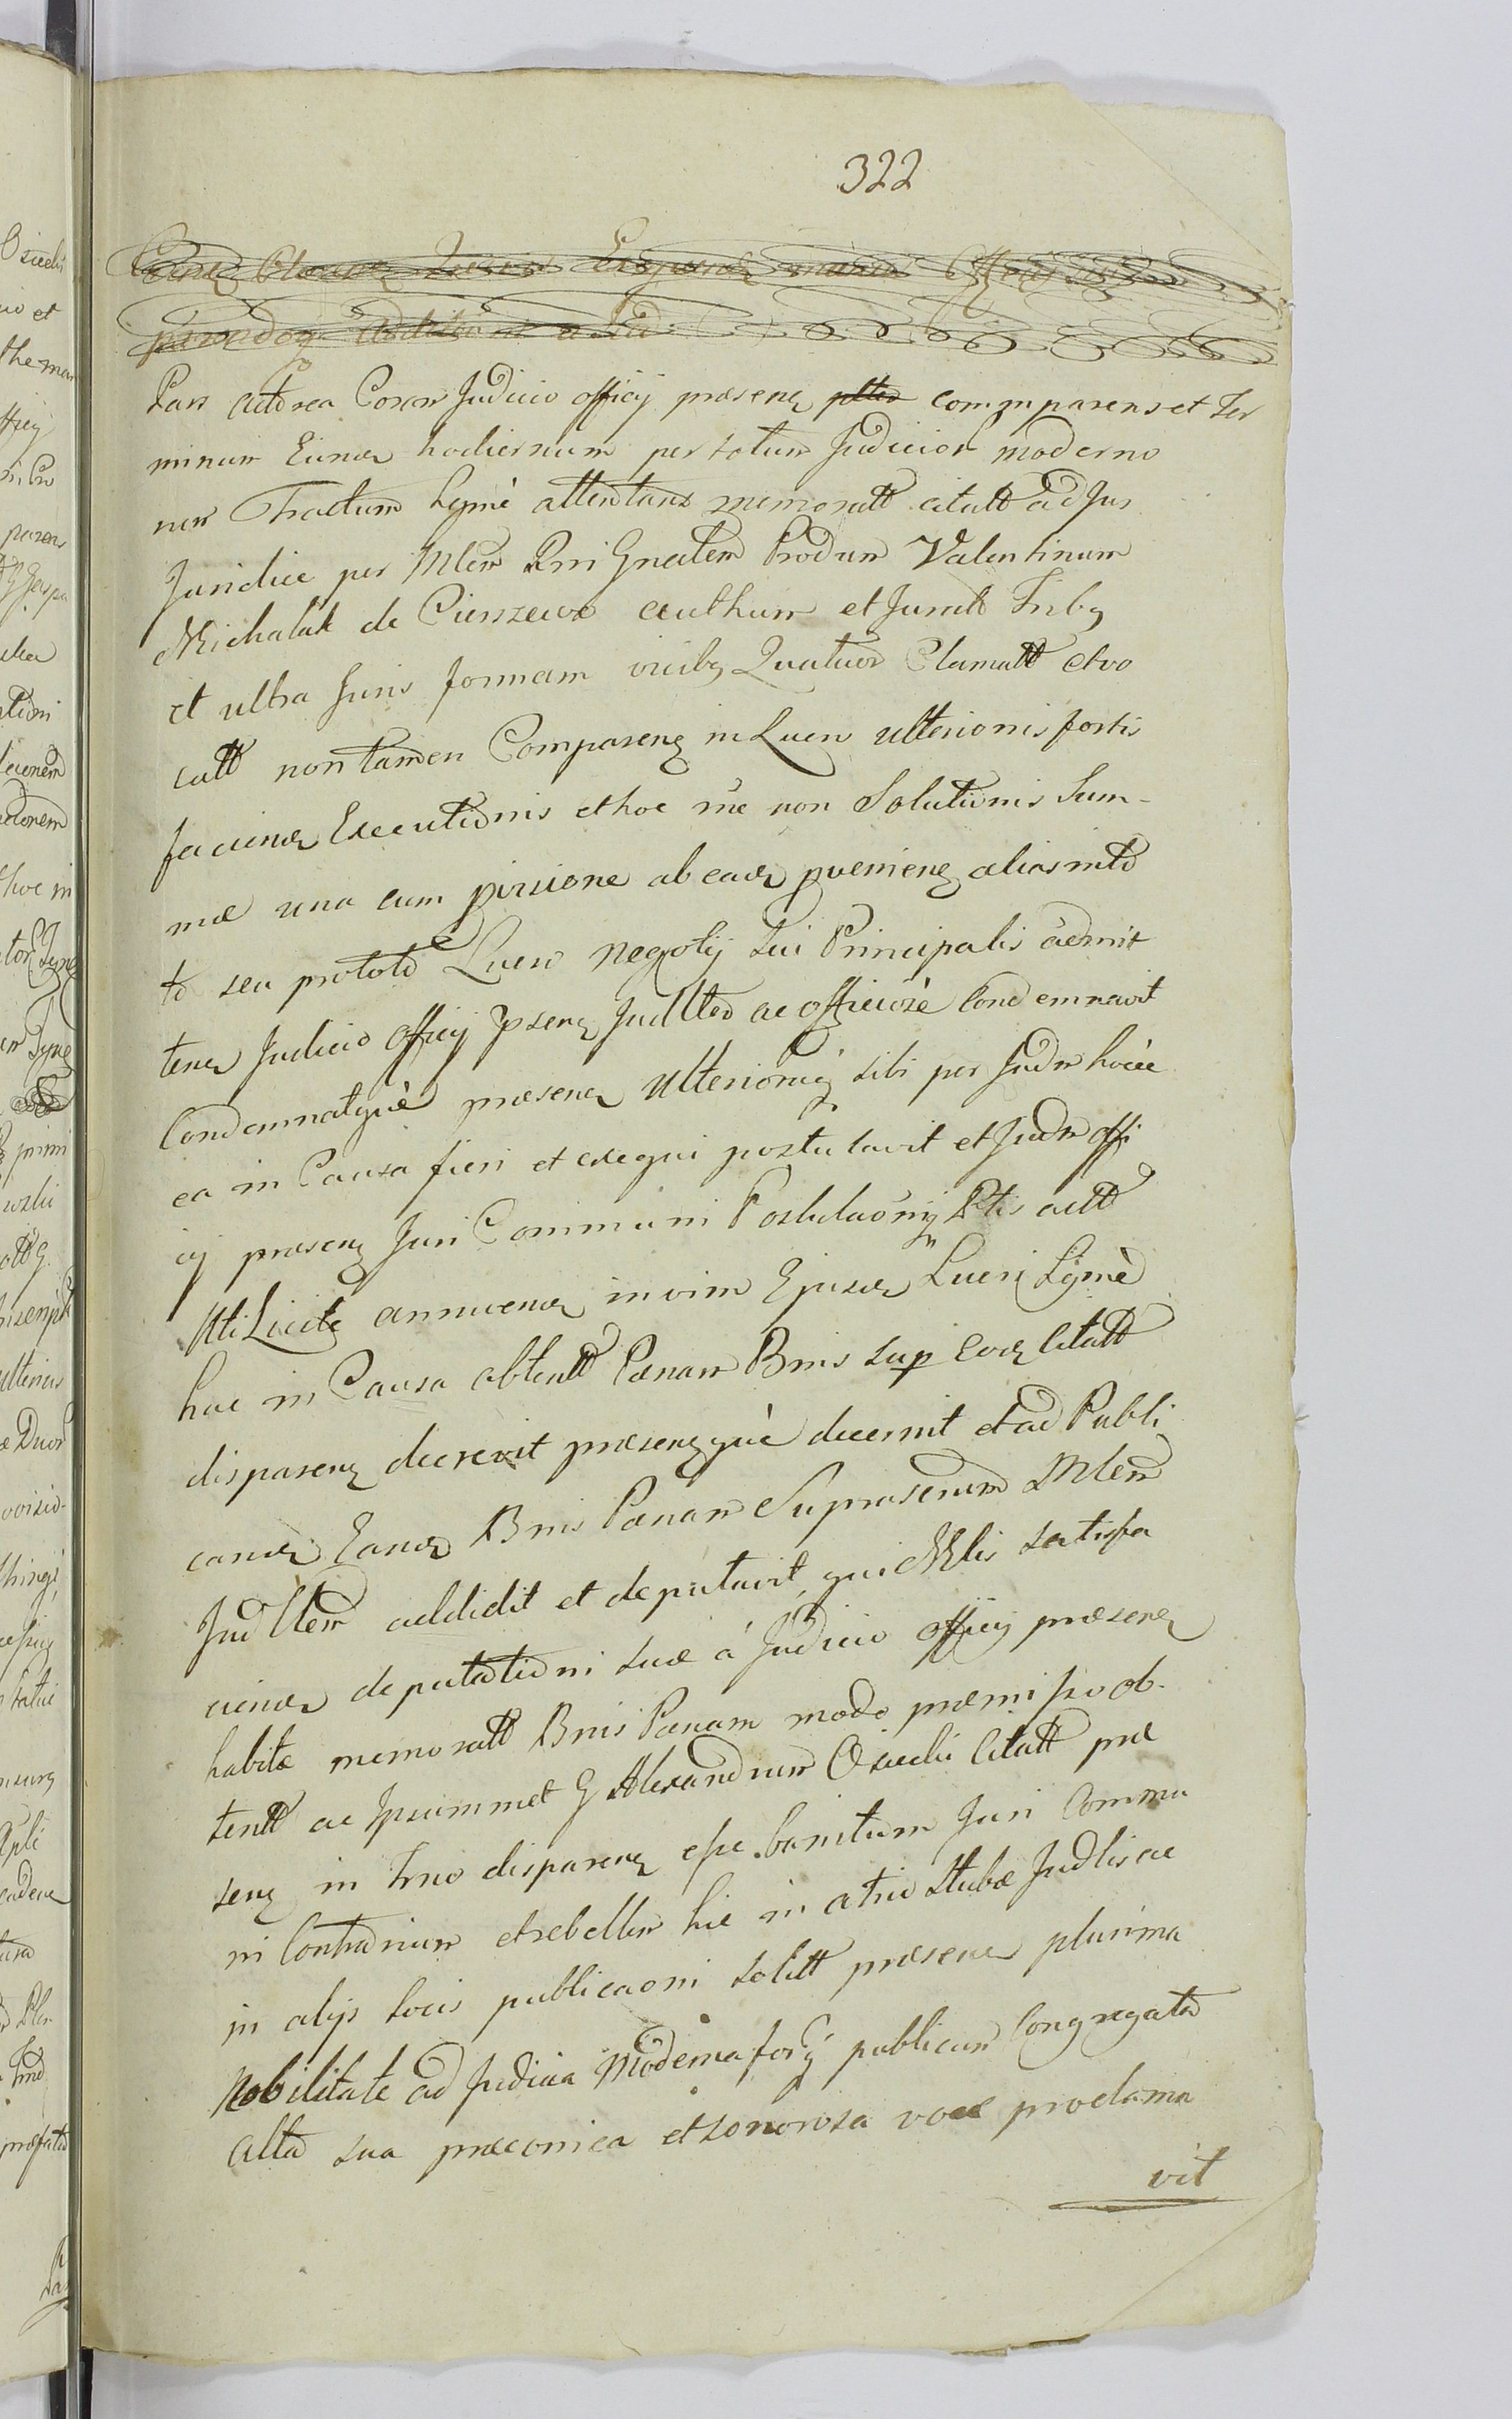 322
Pars actorea Coram Judicio officij praesenq comparens et Ter
minum Eundq hodiernum per totum Judicior moderno
rum Tractum Legmè attentans memoratt citatt ad Jus
Juridice per Mlem Rni Gnralem Produm Valentinum
Michalak de Cierszewo authum et Juratt Tribq
et ultra Juris formam vicibq Quatuor Clamatt et vo
catt non tamen Comparenq in Lucro ulterioris fortis
faciendq Executionis et hoc rne non Solutionis Sum-
mae una cum provisione ab eadq proveniend alias in to
to seu prototo Lucro negotij sui Principalis admit
tendq Judicio officij psenq Judltter ac officiose Condemnavit
Condemnatqüe praesenq Ulterioreq sibi per Judm hocce
ea in Causa fieri et exequi postulavit et Judm offi
cij praesenq Juri Communi Postulaõnijq Ptis actt
Uti Licite annuendq in vim Ejusdq Lucri Lgmè
hac in Causa obtentt Paenam Bnis sup eodq Citatt
disparenq decrevit praesenqqüe decernit et ad Publi
candq Eandq Bnis Paenam Suprascrum Mlem
Judllem addidit et deputavit, qui Mlis satisfa
ciendq deputationi suae à Judicio officij praesenq
habitae memoratt Bnis Paenam modo praemisso ob-
tentt ac Ipsummet G Alexandrum Osiecki Citatt prae
senq in Trno disparenq esse banitum Juri Commu
ni Contrarium et rebellem hic in atrio Stubae Judlis ac
in alijs locis publicaoni solitt praesenq plurima
Nobilitate ad Judicia Moderna forq publicum Congregata
alta sua praeconica et sonorosa voce proclama
vit